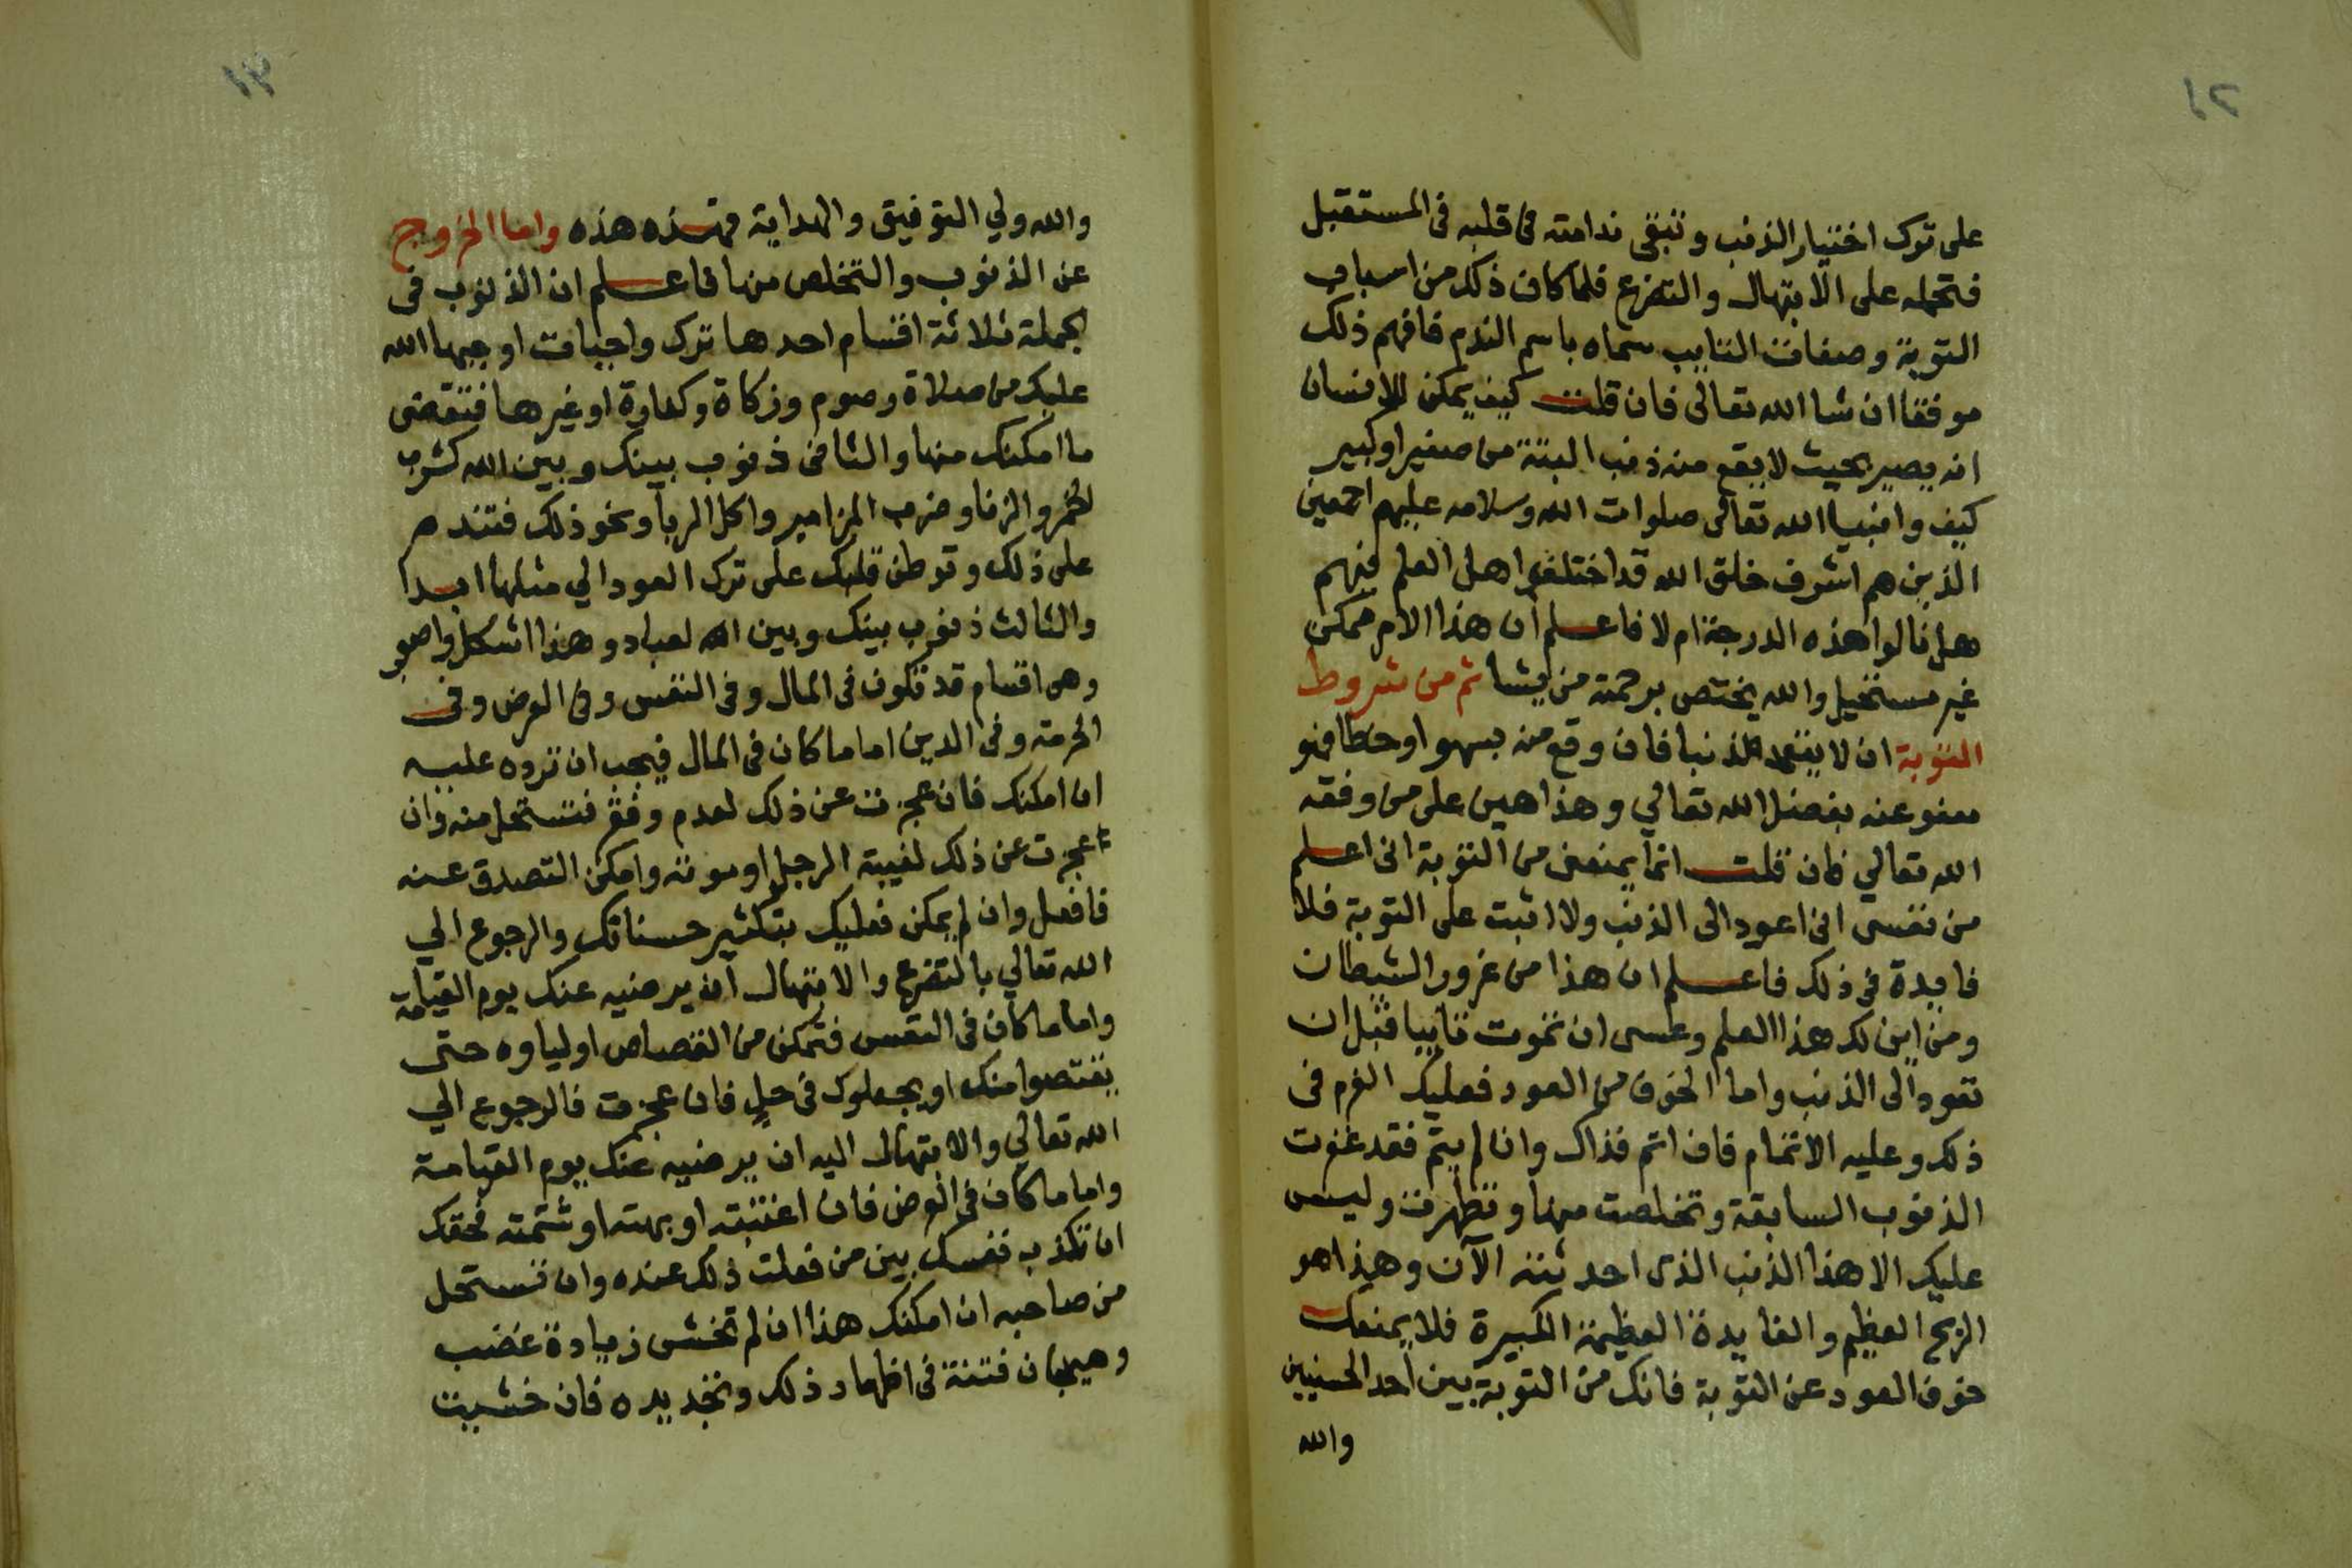 ١٢
على ترك اختيار الذنب وتبقى ندامته فى قلبه فى المستقبل
فتحمله على الابتهال والتضرع فلما كان ذلك من اسباب
التوبة وصفات التايب سماه باسم الندم فافهم ذلك
موفقا ان شا الله تعالى فان قلت كيف يمكن للانسان
انه يصير بحيث لا يقع منه ذنب البتة من صغير او كبير
كيف وانبيا الله تعالى صلوات الله وسلامه عليهم اجمعين
الذين هم اشرف خلق الله قد اختلفوا اهل العلم فيهم
هل نالوا هذه الدرجة ام لا فاعلم ان هذا الامر ممكن
غير مستحيل والله يختص برحمته من يشا ثم من شروط
التوبة ان لا يتعمد ذنبا فان وقع منه بسهو او خطا فهو
معفو عنه بفضل الله تعالي وهذا هين على من وفقه
الله تعالي فان قلت انما يمنعنى من التوبة انى اعلم
من نفسى انى اعود الى الذنب ولا اثبت على التوبة فلا
فايدة فى ذلك فاعلم ان هذا من غرور الشيطان
ومن اين لك هذا العلم وعسى ان تموت تايبا قبل ان
تعود الى الذنب واما الخوف من العود فعليك العزم فى
ذلك وعليه الاتمام فان اتم فذاك وان لم يتم فقد غفرت
الذنوب السابقة وتخلصت منها وتطهرت وليس
عليك الا هذا الذنب الذى احدثته الآن وهذا هو
الربح العظيم والفايدة العظيمة الكبيرة فلا يمنعك
خوف العود عن التوبة فانك من التوبة بين احد الحسنيين
والله
١٣
والله ولي التوفيق والهداية فهذه هذه واما الخروج
عن الذنوب والتخلص منها فاعلم ان الذنوب فى
الجملة ثلاثة اقسام احدها ترك واجبات اوجبها الله
عليك من صلاة وصوم وزكاة وكفارة او غيرها فتقضى
ما امكنك منها والثانى ذنوب بينك وبين الله كشرب
الخمر والزنا وضرب المزامير واكل الربا ونحو ذلك فتندم
على ذلك وتوطن قلبك على ترك العود الي مثلها ابدا
والثالث ذنوب بينك وبين العباد وهذا اشكل واصعب
وهى اقسام قد تكون فى المال وفى النفس وفى العرض وفى
الحرمة وفى الدين اما ما كان فى المال فيجب ان ترده عليه
ان امكنك فان عجزت عن ذلك لعدم وفقر فتستحل منه وان
عجزت عن ذلك لغيبة الرجل او موته وامكن التصدق عنه
فافعل وان لم يمكن فعليك بتكثير حسناتك والرجوع الي
الله تعالي بالتضرع والابتهال ان يرضيه عنك يوم القيامة
واما ما كان فى النفس فتمكن من القصاص اولياوه حتى
يقتصوا منك او يجعلوك فى حلٍ فان عجزت فالرجوع الي
الله تعالي والابتهال اليه ان يرضيه عنك يوم القيامة
واما ما كان فى العرض فان اغتبته او بهته او شتمته فحقك
ان تكذب نفسك بين من فعلت ذلك عنده وان تستحل
من صاحبه ان امكنك هذا ان لم تخش زيادة غضب
وهيجان فتنة فى اظهار ذلك وتجديده فان خشيت